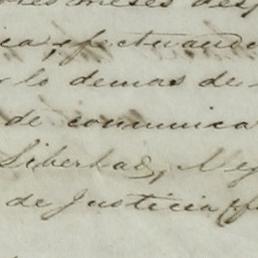 meses des
ca, efectuando
lo demas de
de comunica
Libertad, Neg
de Justicia, y